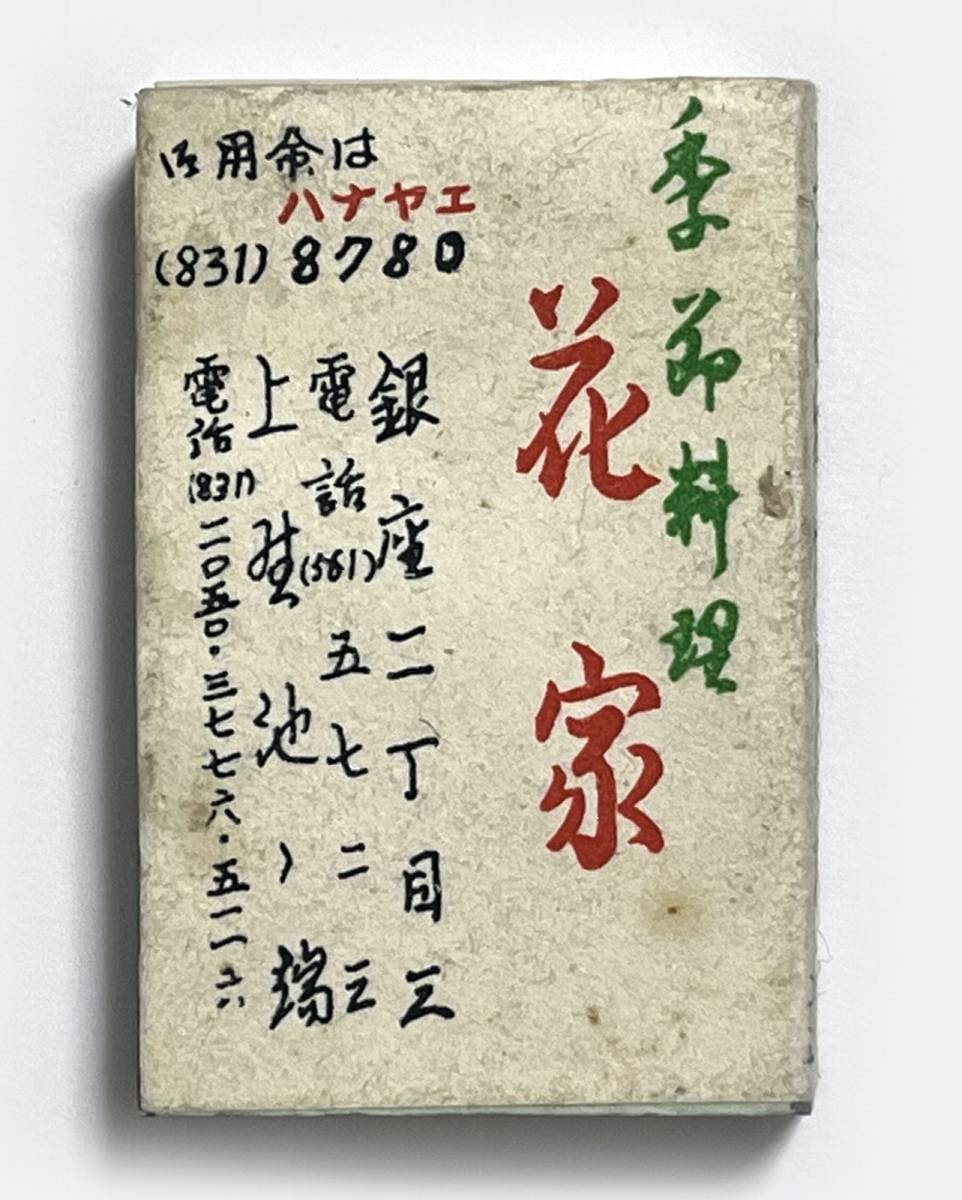 季節料理
花家
御用命は
ハナヤエ
(831) 8780
銀座二丁目三
電話(561)五七二三
上野池ノ端
電話(831)二〇五〇・三七七六・五一一六